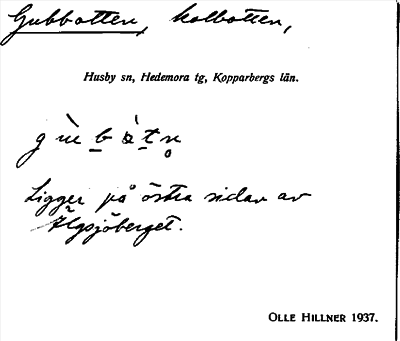 Gubbotten, kolbotten,
Husby sn, Hedemora tg, Kopparbergs län.
Ligger på östra sidan av
Älgsjöberget.
OLLE HILLNER 1937.